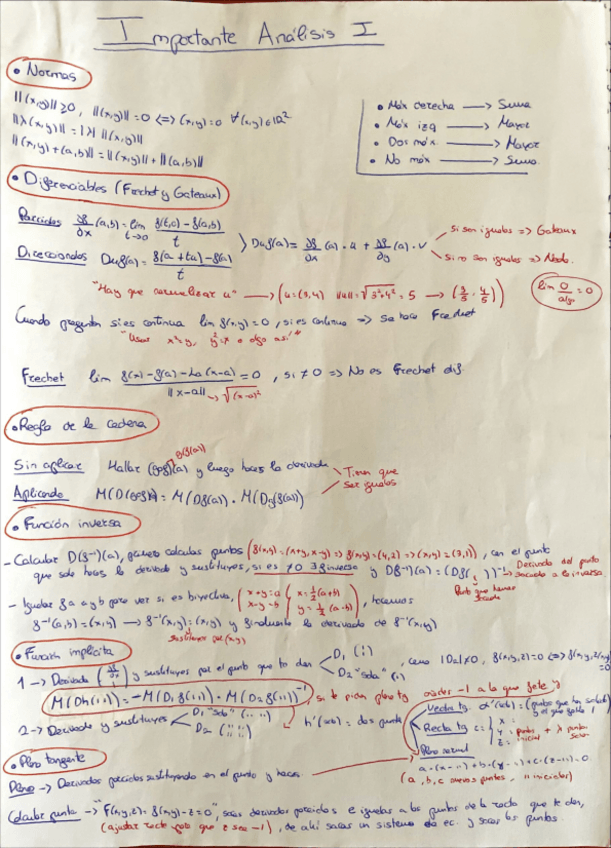 Importante Análisis I
• Normas
||(x,y)|| ≥ 0, ||(x,y)|| = 0 <=> (x,y) = 0 ∀(x,y)∈ℝ²
||λ(x,y)|| = |λ| ||(x,y)||
||(x,y)+(a,b)|| = ||(x,y)|| + ||(a,b)||
• Máx derecha → Suma
• Máx izq → Mayor
• Dos máx → Mayor
• No máx → Suma.
• Diferenciables (Frechet y Gateaux)
Parciales ∂f/∂x (a,b) = lim t→0 f(t,0) - f(a,b) / t
Direccionales Duf(a) = f(a+tu) - f(a) / t
Duf(a) = ∂f/∂x (a) · u + ∂f/∂y (a) · v
si son iguales => Gateaux
si no son iguales => Nada.
"Hay que normalizar u" → (u=(3,4) ||u|| = √3²+4² = 5 → (3/5, 4/5))
lim 0/algo = 0
Cuando preguntan si es continua lim f(x,y) = 0, si es continua => Se hace Frechet
"Usar x²=y, y²=x o algo así"
Frechet lim f(x) - f(a) - La(x-a) / ||x-a|| = 0, si ≠ 0 => No es Frechet dif.
→ √(x-a)²
• Regla de la cadena
g(f(a))
Sin aplicar Hallar (g∘f)(a) y luego haces la derivada
Aplicando M(D(g∘f)) = M(Df(a)) · M(Dg(f(a)))
Tienen que ser iguales
• Función inversa
- Calcular D(f⁻¹)(a), primero calculas puntos (f(x,y) = (x+y, x-y) => f(x,y) = (4,2) => (x,y) = (3,1)), con el punto
que sale haces la derivada y sustituyes, si es ≠0 ∃ f inversa y Df⁻¹(a) = (Df( , ))⁻¹ → Derivada del punto sacado a la inversa.
Punto que hemos sacado
- Igualar f a a y b para ver si es biyectiva, (x+y=a x-y=b) (x=½(a+b) y=½(a-b)), hacemos
f⁻¹(a,b) = (x,y) → f⁻¹(x,y) = (x,y) y finalmente la derivada de f⁻¹(x,y)
Sustituyes por (x,y)
• Función implícita
1 → Derivada (∂f/∂x) y sustituyes por el punto que te dan D₁ (:) D₂ "sola" (:), como |D₂| ≠ 0, f(x,y,z) = 0 <=>
M(Dh(:,:)) = -M(D₁f(:,:)) · M(D₂f(:,:))⁻¹, si te piden plano tg
2 → Derivada y sustituyes D₁ "sola" (:, :) D₂ (:, :) h'(ab) = dos puntos
Vector tg
Recta tg c = x = y = z = puntos inicial + λ puntos
Plano normal
a·(x-··) + b·(y-··) + c·(z-··) = 0
(a, b, c nuevos puntos, ·· iniciales)
• Plano tangente
Plano → Derivadas parciales sustituyendo en el punto y haces
Calcular punto → "F(x,y,z) = f(x,y) - z = 0", sacas derivadas parciales e igualas a los puntos de la recta que te dan,
(ajustar recta para que z sea -1), de ahí sacas un sistema de ec. y sacas los puntos.